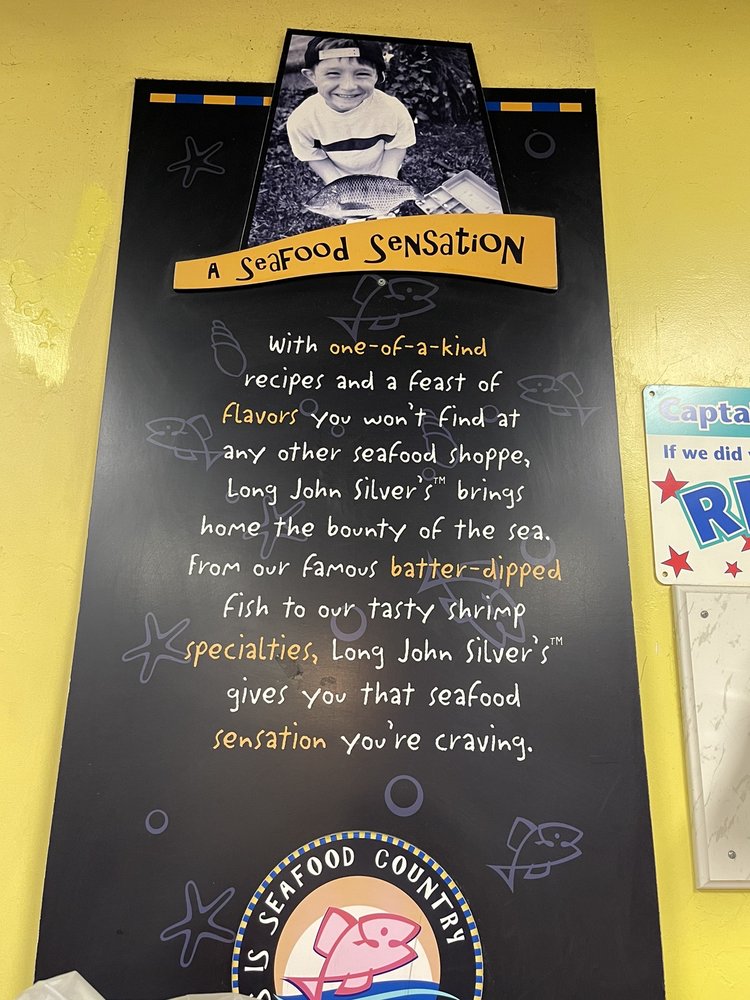 A SEAFOOD SENSATION
With one-of-a-kind
recipes and a feast of
flavors you won't find at
any other seafood shoppe,
Long John Silver's™ brings
home the bounty of the sea.
From our famous batter-dipped
fish to our tasty shrimp
specialties, Long John Silver's™
gives you that seafood
sensation you're craving.
IS SEAFOOD COUNTRY
If we did